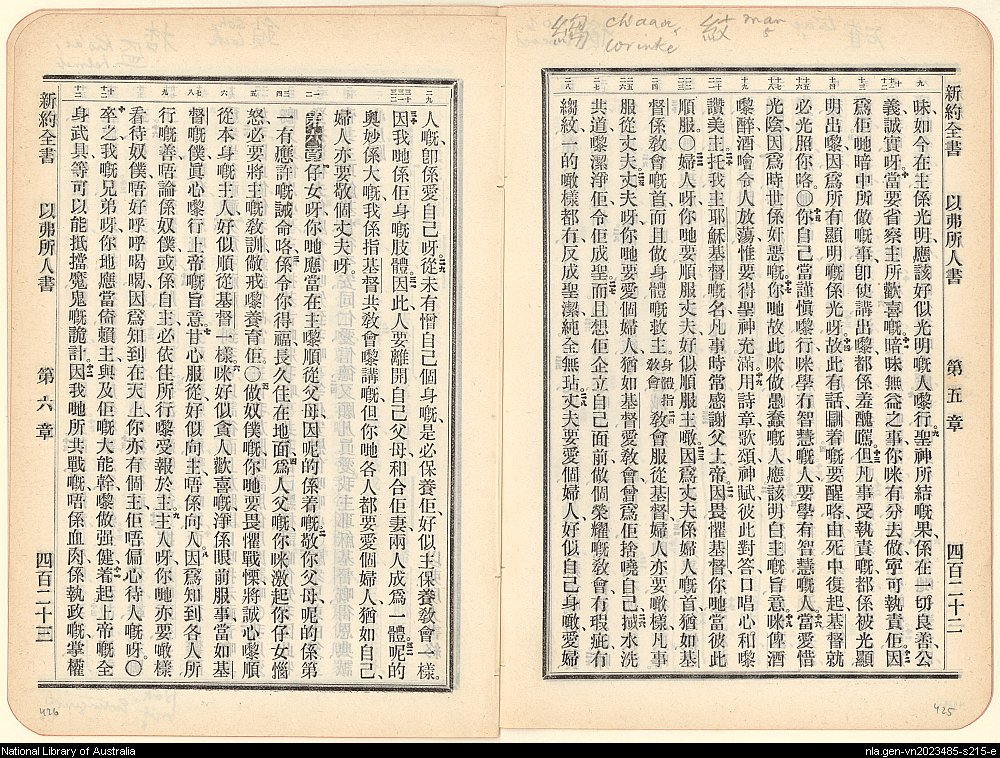 縐 chaau, 紋 man
wrinkle 5
新約全書 以弗所人書 第五章 四百二十二
味、如今在主係光明、應該好似光明嘅人嚟行、聖神所結嘅果、係在一切良善、公
義、誠實呀、當要省察主所歡喜嘅、暗昧無益之事、你咪有分去做、寧可執責佢、因
爲佢哋暗中所做嘅事、卽使講出嚟都係羞醜嘅、但凡事受執責嘅、都係被光顯
明出嚟、因爲所有顯明嘅係光呀、故此有話、瞓着嘅要醒咯、由死中復起、基督就
必光照你咯〇你自己當謹愼嚟行、咪學有智慧嘅人、要學有智慧嘅人、當愛惜
光陰、因爲時世係奸惡嘅、你哋故此咪做愚蠢嘅人、應該明白主嘅旨意、咪俾酒
嚟醉、酒噲令人放蕩、惟要得聖神充滿、用詩章歌頌神賦、彼此對答、口唱心和嚟
讚美主、托我主耶穌基督嘅名、凡事時常感謝父上帝、因畏懼基督、你哋當彼此
順服〇婦人呀、你哋要順服丈夫、好似順服主噉、因爲丈夫係婦人嘅首、猶如基
督係敎會嘅首、而且做身體嘅救主、身體指敎會 敎會服從基督、婦人亦要噉樣、凡事
服從丈夫、丈夫呀、你哋要愛個婦人、猶如基督愛敎會、曾爲佢捨嘵自己、搣水洗
共道嚟潔淨佢、令佢成聖、而且想佢企立自己面前、做個榮耀嘅敎會、有瑕疵、有
縐紋、一的噉樣都有、反成聖潔純全無玷、丈夫要愛個婦人、好似自己身噉、愛婦
人嘅、卽係愛自己呀、從未有憎自己個身嘅、是必保養佢、好似主保養敎會一樣、
因我哋係佢身嘅肢體、因此人要離開自己父母、和合佢妻、兩人成爲一體、呢的
奧妙係大嘅、我係指基督共敎會嚟講嘅、但你哋各人都要愛個婦人、猶如自己、
婦人亦要敬個丈夫呀、
仔女呀、你哋應當在主嚟順從父母、因呢的係着嘅、敬你父母、呢的係第
一有應許嘅誡命咯、係令你得福、長久住在地面、爲人父嘅、你咪激起你仔女惱
怒、必要將主嘅敎訓儆戒嚟養育佢〇做奴僕嘅、你哋要畏懼戰慄、將誠心嚟順
從本身嘅主人、好似順從基督一樣、咪好似貪人歡喜嘅、淨係眼前服事、當如基
督嘅僕、眞心嚟行上帝嘅旨意、甘心服從、好似向主、唔係向人、因爲知到各人所
行嘅善、唔論係奴僕、或係自主、必依住所行嚟受報於主、主人呀、你哋亦要噉樣
看待奴僕、唔好呼呼喝喝、因爲知到在天上你亦有個主、佢唔偏心待人嘅呀〇
卒之、我嘅兄弟呀、你哋應當倚賴主、與及佢嘅大能幹嚟做强健、着起上帝嘅全
身武具、等可以能抵擋魔鬼嘅詭計、因我哋所共戰嘅、唔係血肉、係執政嘅、掌權
新約全書 以弗所人書 第六章 四百二十三
426
425
National Library of Australia
nla.gen-vn2023485-s215-e